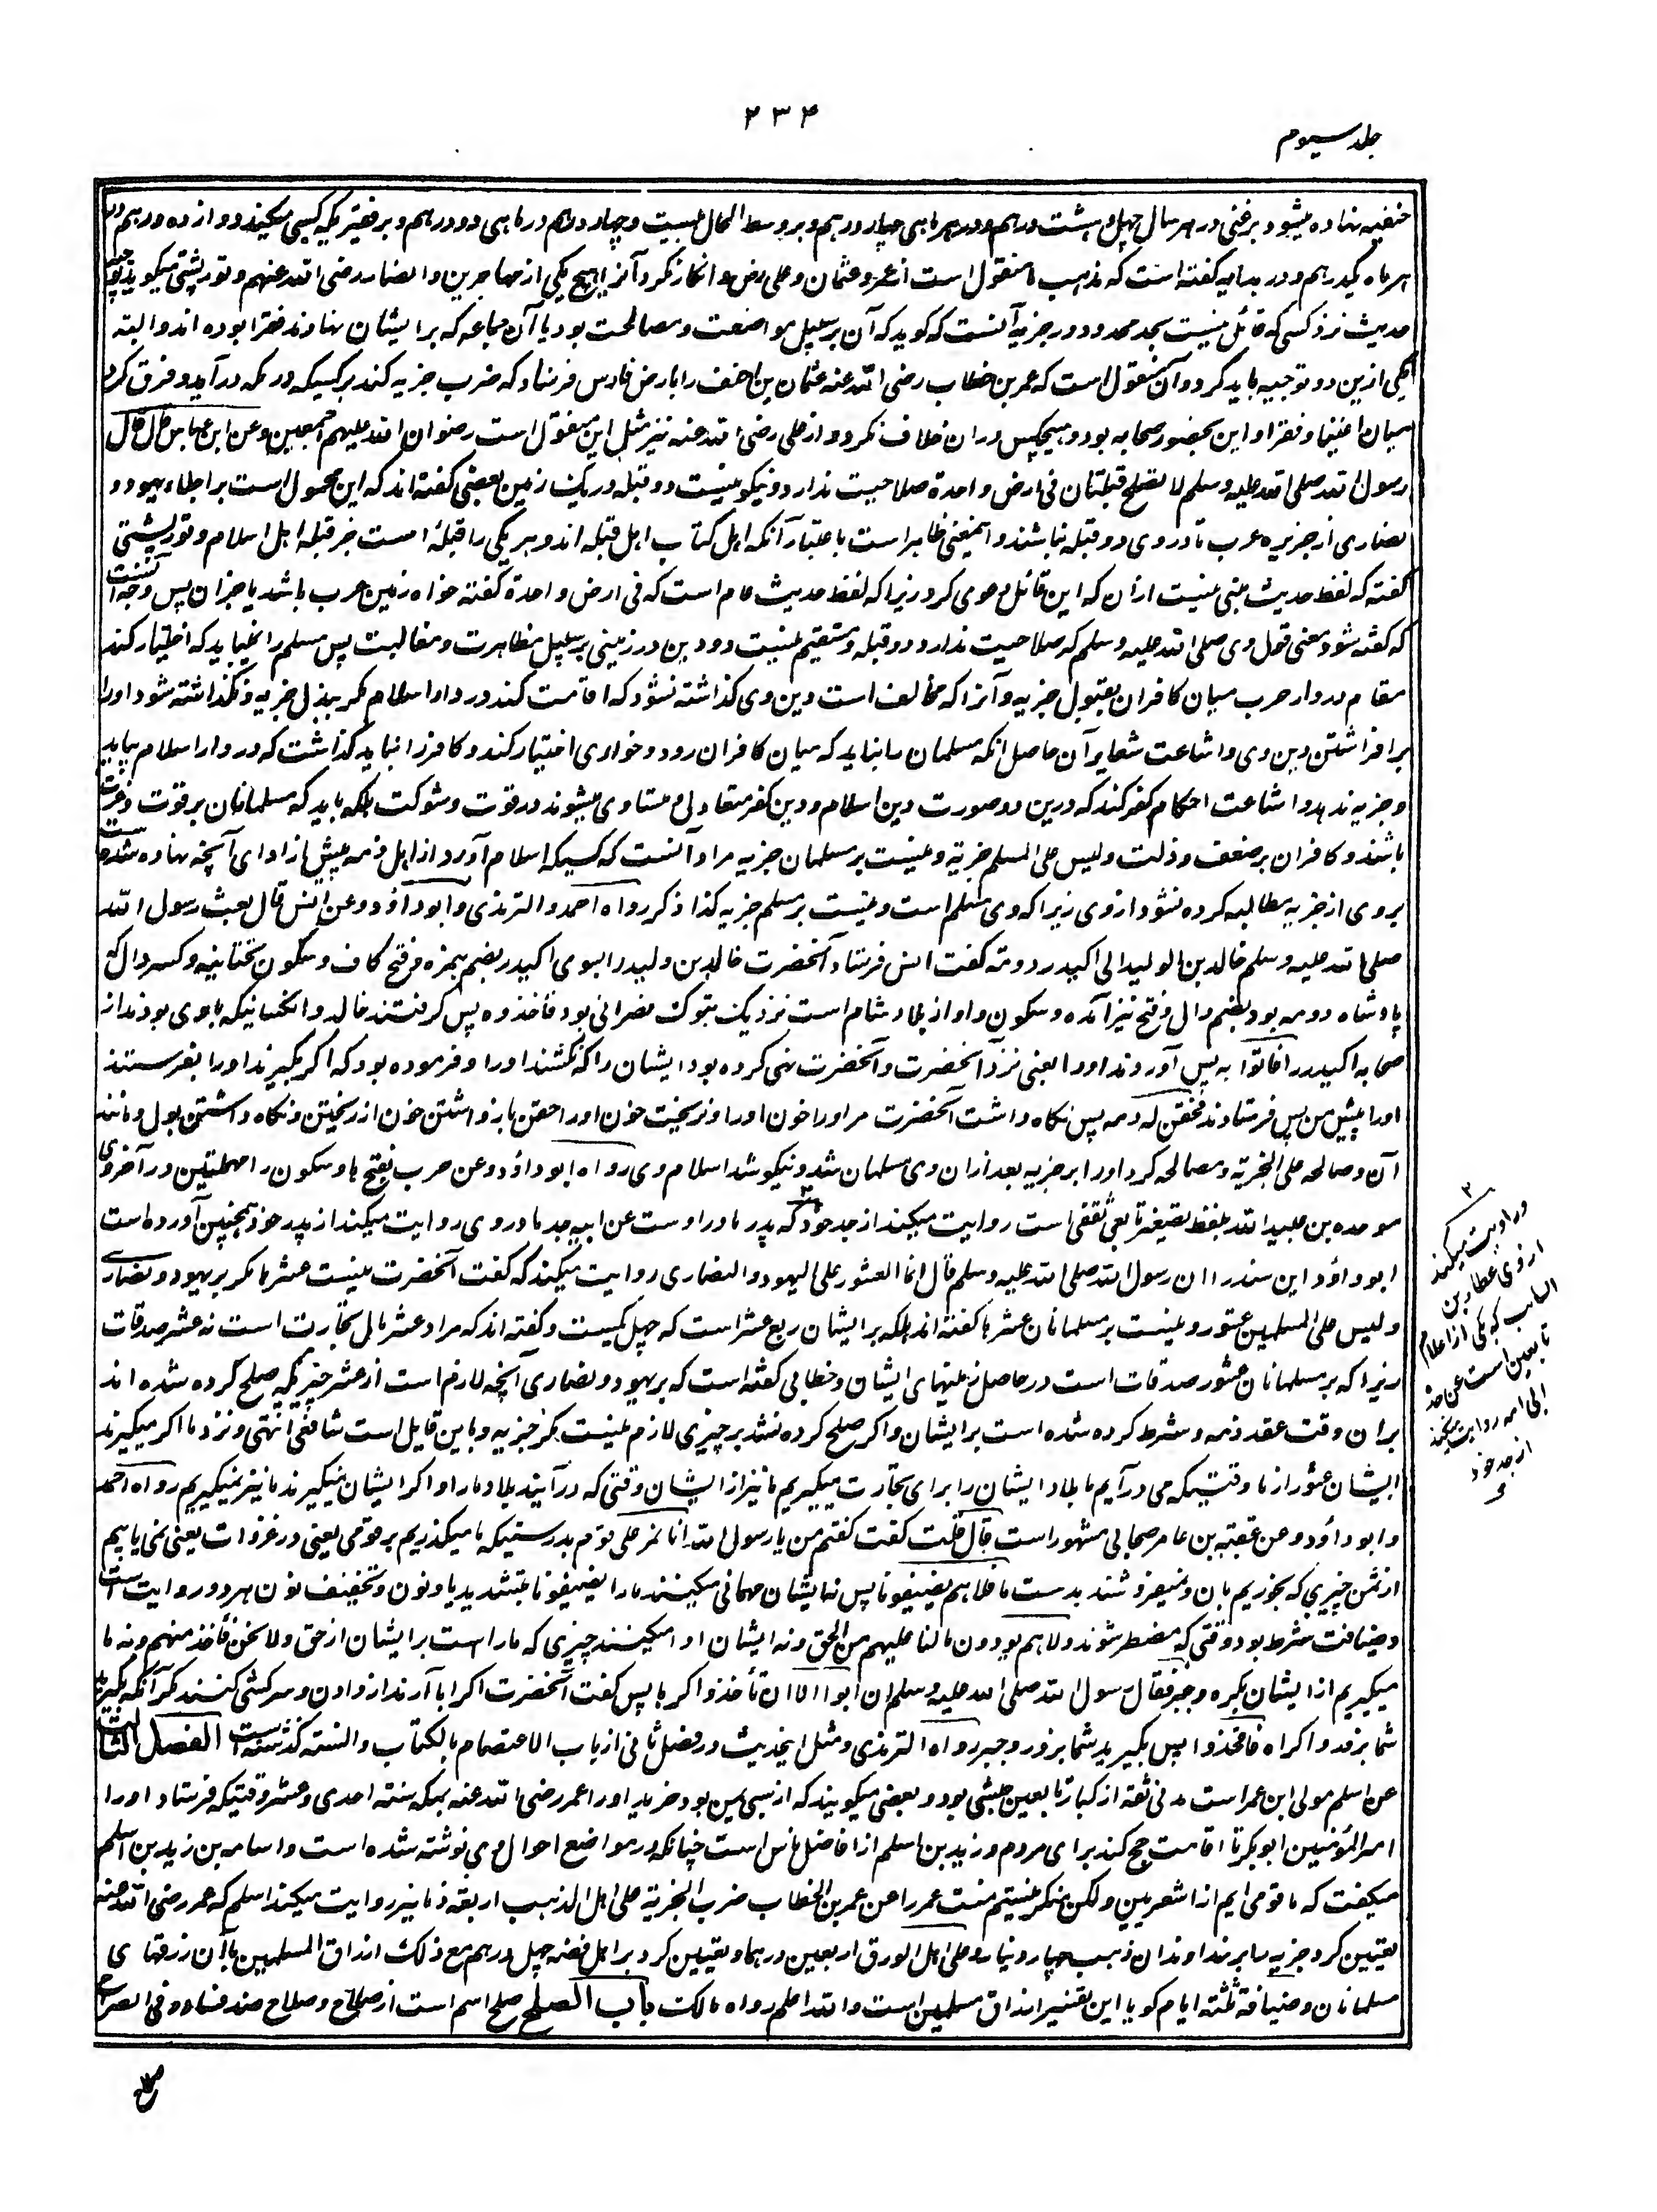 ۲۳۴
جلد سیوم
حنفیه نهاده میشود برغنی در هر سال چهل و هشت درهم و در هر ماهی چهار درهم و بر وسط الحال بیست و چهار درهم در ماهی دو درهم و بر فقیریکه کسبی میکند دوازده درهم در
هر ماه یکدرهم و در هدایه گفته است که مذهب ما منقول است از عمر و عثمان و علی رض و انکار نکرد آنرا هیچ یکی از مهاجرین و انصار رضی الله عنهم و تورپشتی میگوید توجیه
حدیث نزد کسی که قائل نیست بحد محدود در جزیه آنست که گوید که آن بر سبیل مواضعت و مصالحت بود یا آن جماعه که بر ایشان نهادند فقرا بوده اند و البته
یکی ازین دو توجیه باید کرد و آن منقول است که عمر بن خطاب رضی الله عنه عثمان بن احنف را بارض فارس فرستاد که ضرب جزیه کند بر کسیکه در مکه درآید و فرق کرد
میان اغنیا و فقرا و این بحضور صحابه بود و هیچکس دران خلاف نکرد و از علی رضی الله عنه نیز مثل این منقول است رضوان الله علیهم اجمعین وعن ابن عباس قال قال
رسول الله صلی الله علیه وسلم لا تصلح قبلتان فی ارض واحدة صلاحیت ندارد و نیکو نیست دو قبله در یک زمین بعضی گفته اند که این محمول است بر اجلاء یهود و
نصاری از جزیره عرب تا در وی دو قبله نباشند و اینمعنی ظاهر است باعتبار آنکه اهل کتاب اهل قبله اند و هر یکی را قبلهٔ است جز قبله اهل اسلام و تورپشتی
گفته که لفظ حدیث مبنی نیست ازان که این قائل دعوی کرد زیرا که لفظ حدیث عام است که فی ارض واحدة گفته خواه زمین عرب باشد یا جز آن پس وجه آنست
که گفته شود معنی قول وی صلی الله علیه وسلم که صلاحیت ندارد دو قبله و مستقیم نیست دو دین در زمینی بر سبیل مظاهرت و مغالبت پس مسلم را نمیباید که اختیار کند
مقام در دار حرب میان کافران بقبول جزیه و آنرا که مخالف است دین وی گذاشته نشود که اقامت کند در دار اسلام مگر ببذل جزیه و نگذاشته شود اورا
بر افراشتن دین وی و اشاعت شعایر آن حاصل آنکه مسلمان را نباید که میان کافران رود و خواری اختیار کند و کافر را نباید گذاشت که در دار اسلام بیاید
و جزیه ندهد و اشاعت احکام کفر کند که درین دو صورت دین اسلام و دین کفر متعادل و متساوی میشوند در قوت و شوکت بلکه باید که مسلمانان بر قوت و عزت
باشند و کافران بر ضعف و ذلت ولیس علی المسلم جزیة و نیست بر مسلمان جزیه مراد آنست که کسیکه اسلام آورد از اهل ذمه پیش از ادای آنچه نهاده شده است
بر وی از جزیه مطالبه کرده نشود از وی زیرا که وی مسلم است و نیست بر مسلم جزیه کذا ذکر رواه احمد والترمذی وابوداؤد وعن انس قال بعث رسول الله
صلی الله علیه وسلم خالد بن الولید الی اکیدر دومة گفت انس فرستاد آنحضرت خالد بن ولید را بسوی اکیدر بضم همزه و فتح کاف و سکون تحتانیه و کسر دال که
پادشاه دومه بود بضم دال و فتح نیز آمده و سکون واو از بلاد شام است نزدیک تبوک نصرانی بود فاخذوه پس گرفتند خالد و آنکسانیکه باوی بودند از
صحابه اکیدر را فاتوا به پس آوردند او را یعنی نزد آنحضرت و آنحضرت نهی کرده بود ایشان را که نکشند اورا و فرموده بود که اگر بگیرند اورا بفرستند
اورا پیش من پس فرستادند فحقن له دمه پس نگاه داشت آنحضرت مر اورا خون اورا و نریخت خون اورا حقن باز داشتن خون از ریختن و نگاه داشتن بول و مانند
آن وصالحه علی الجزیة و مصالحه کرد اورا بر جزیه بعد ازان وی مسلمان شد و نیکو شد اسلام وی رواه ابوداؤد وعن حرب بفتح حا و سکون را مهملتین و در آخر وی
موحده بن عبید الله بلفظ تصغیر تابعی ثقفی است روایت میکند از جد خود که پدر مادر اوست عن ابیه جد مادر وی روایت میکند از پدر خود همچنین آورده است
ابوداؤد این سند را ان رسول الله صلی الله علیه وسلم قال انما العشور علی الیهود والنصاری روایت میکند که گفت آنحضرت نیست عشر ها مگر بر یهود و نصاری
ولیس علی المسلمین عشور و نیست بر مسلمانان عشر ها گفته اند بلکه بر ایشان ربع عشر است که چهل یکیست و گفته اند که مراد عشر مال تجارت است نه عشر صدقات
زیرا که بر مسلمانان عشور صدقات است در حاصل زمینهای ایشان و خطابی گفته است که بر یهود و نصاری آنچه لازم است از عشر چیزیکه صلح کرده شده اند
بران وقت عقد ذمه و شرط کرده شده است بر ایشان و اگر صلح کرده نشد بر چیزی لازم نیست مگر جزیه و باین قایل است شافعی انتهی و نزد ما اگر میگیرند
ایشان عشور از ما وقتیکه می درآیم ما بلاد ایشان را برای تجارت میگیریم ما نیز از ایشان وقتی که درآیند بلاد مارا و اگر ایشان نمیگیرند ما نیز نمیگیریم رواه احمد
وابوداؤد وعن عقبة بن عامر صحابی مشهور است قال قلت گفت گفتم من یا رسول الله انا نمر علی قوم بدرستیکه ما میگذریم بر قومی یعنی در غزوات یعنی نمی یابیم
از ثمن چیزی که بخوریم بان و نمیفروشند بدست ما فلا هم یضیفونا پس نه ایشان مهمانی میکنند مارا یضیفونا بتشدید یا و نون و تخفیف نون هر دو روایت است
و ضیافت شرط بود وقتی که مضطر شوند ولا هم یؤدون ما لنا علیهم من الحق و نه ایشان ادا میکنند چیزی که مارا است بر ایشان از حق ولا نحن نأخذ منهم و نه ما
میگیریم از ایشان بکره و جبر فقال رسول الله صلی الله علیه وسلم ان ابوا الا ان تأخذوا کرها پس گفت آنحضرت اگر ابا آرند از دادن و سرکشی کنند مگر آنکه بگیرید
شما بزور و اکراه فخذوا پس بگیرید شما بزور و جبر رواه الترمذی و مثل اینحدیث در فصل ثانی از باب الاعتصام بالکتاب والسنة گذشته است الفصل الثالث
عن اسلم مولی ابن عمر است مدنی ثقه از کبار تابعین حبشی بود و بعضی میگویند که از سبی یمن بود خرید اورا عمر رضی الله عنه بمکه سنه احدی و عشر وقتیکه فرستاد اورا
امیر المؤمنین ابوبکر تا اقامت حج کند برای مردم و زید بن اسلم از افاضل ناس است چنانکه در مواضع احوال وی نوشته شده است و اسامه بن زید بن اسلم
میگفت که ما قومی ایم از اشعریین ولکن منکر نیستیم منت عمر را عن عمر بن الخطاب ضرب الجزیة علی اهل الذهب اربعة دنانیر روایت میکند اسلم که عمر رضی الله عنه
تعیین کرد جزیه را بر خداوندان ذهب چهار دینار وعلی اهل الورق اربعین درهما و تعیین کرد بر اهل فضه چهل درهم مع ذلک ارزاق المسلمین با آن رزقهای
مسلمانان وضیافة ثلثة ایام گویا این تفسیر ارزاق مسلمین است والله اعلم رواه مالک باب الصلح صلح اسم است از صلاح و صلاح ضد فساد و فی الصراح
وروایت میکند
از وی عطاء بن
السایب که یکی از اعلام
تابعین است عن جده
ابی امه روایت میکند
از جد خود